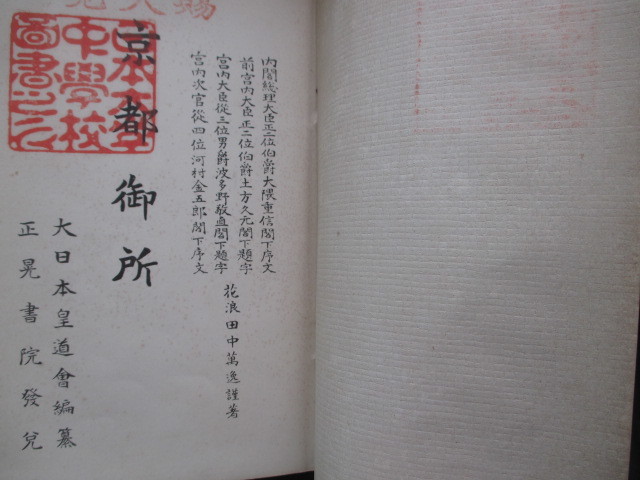 內閣總理大臣正二位伯爵大隈重信閣下序文
前宮內大臣正二位伯爵土方久元閣下題字
宮內大臣從三位男爵波多野敬直閣下題字
宮內次官從四位河村金五郎閣下序文
花浪田中萬逸謹著
京都御所
大日本皇道會編纂
正晃書院發兌
中學校
圖書之